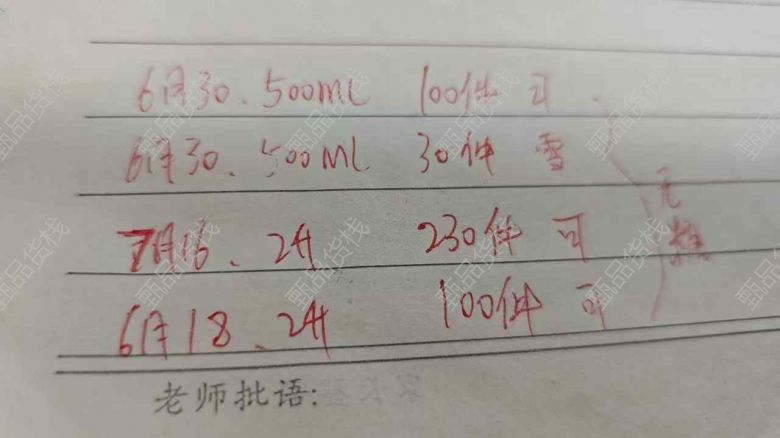 6月30、500ML 100件 可
6月30、500ML 30件 雪
7月16、2升 230件 可
6月18、2升 100件 可
无糖
老师批语:
甄品货栈